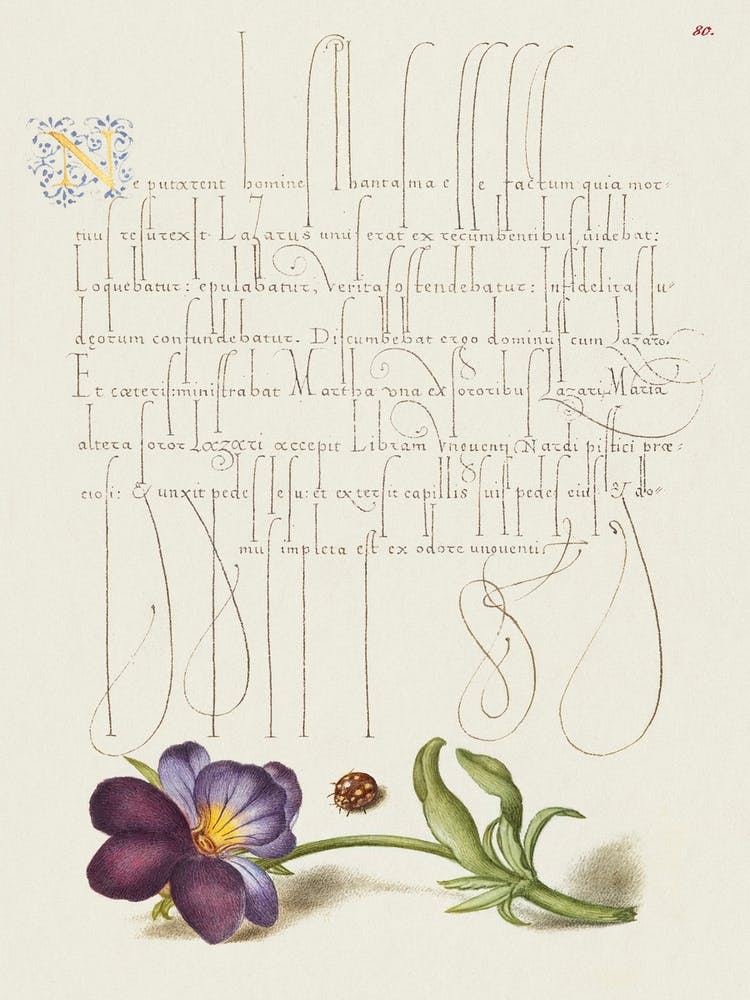 80.
Ne putarent homines Phantasma esse factum quia mor-
tuus resurexit. Lazarus unus erat ex recumbentibus, uidebat:
Loquebatur: epulabatur, Veritas ostendebatur: Infidelitas Iu-
dęorum confundebatur. Discumbebat ergo dominus cum Lazaro.
Et cæteris: ministrabat Martha vna ex sororibus Lazari, Maria
altera soror Lazari accepit Libram vnguenti Nardi pistici præ-
ciosi: & unxit pedes Iesu: et extersit capillis suis pedes eius & do-
mus impleta est ex odore unguenti.